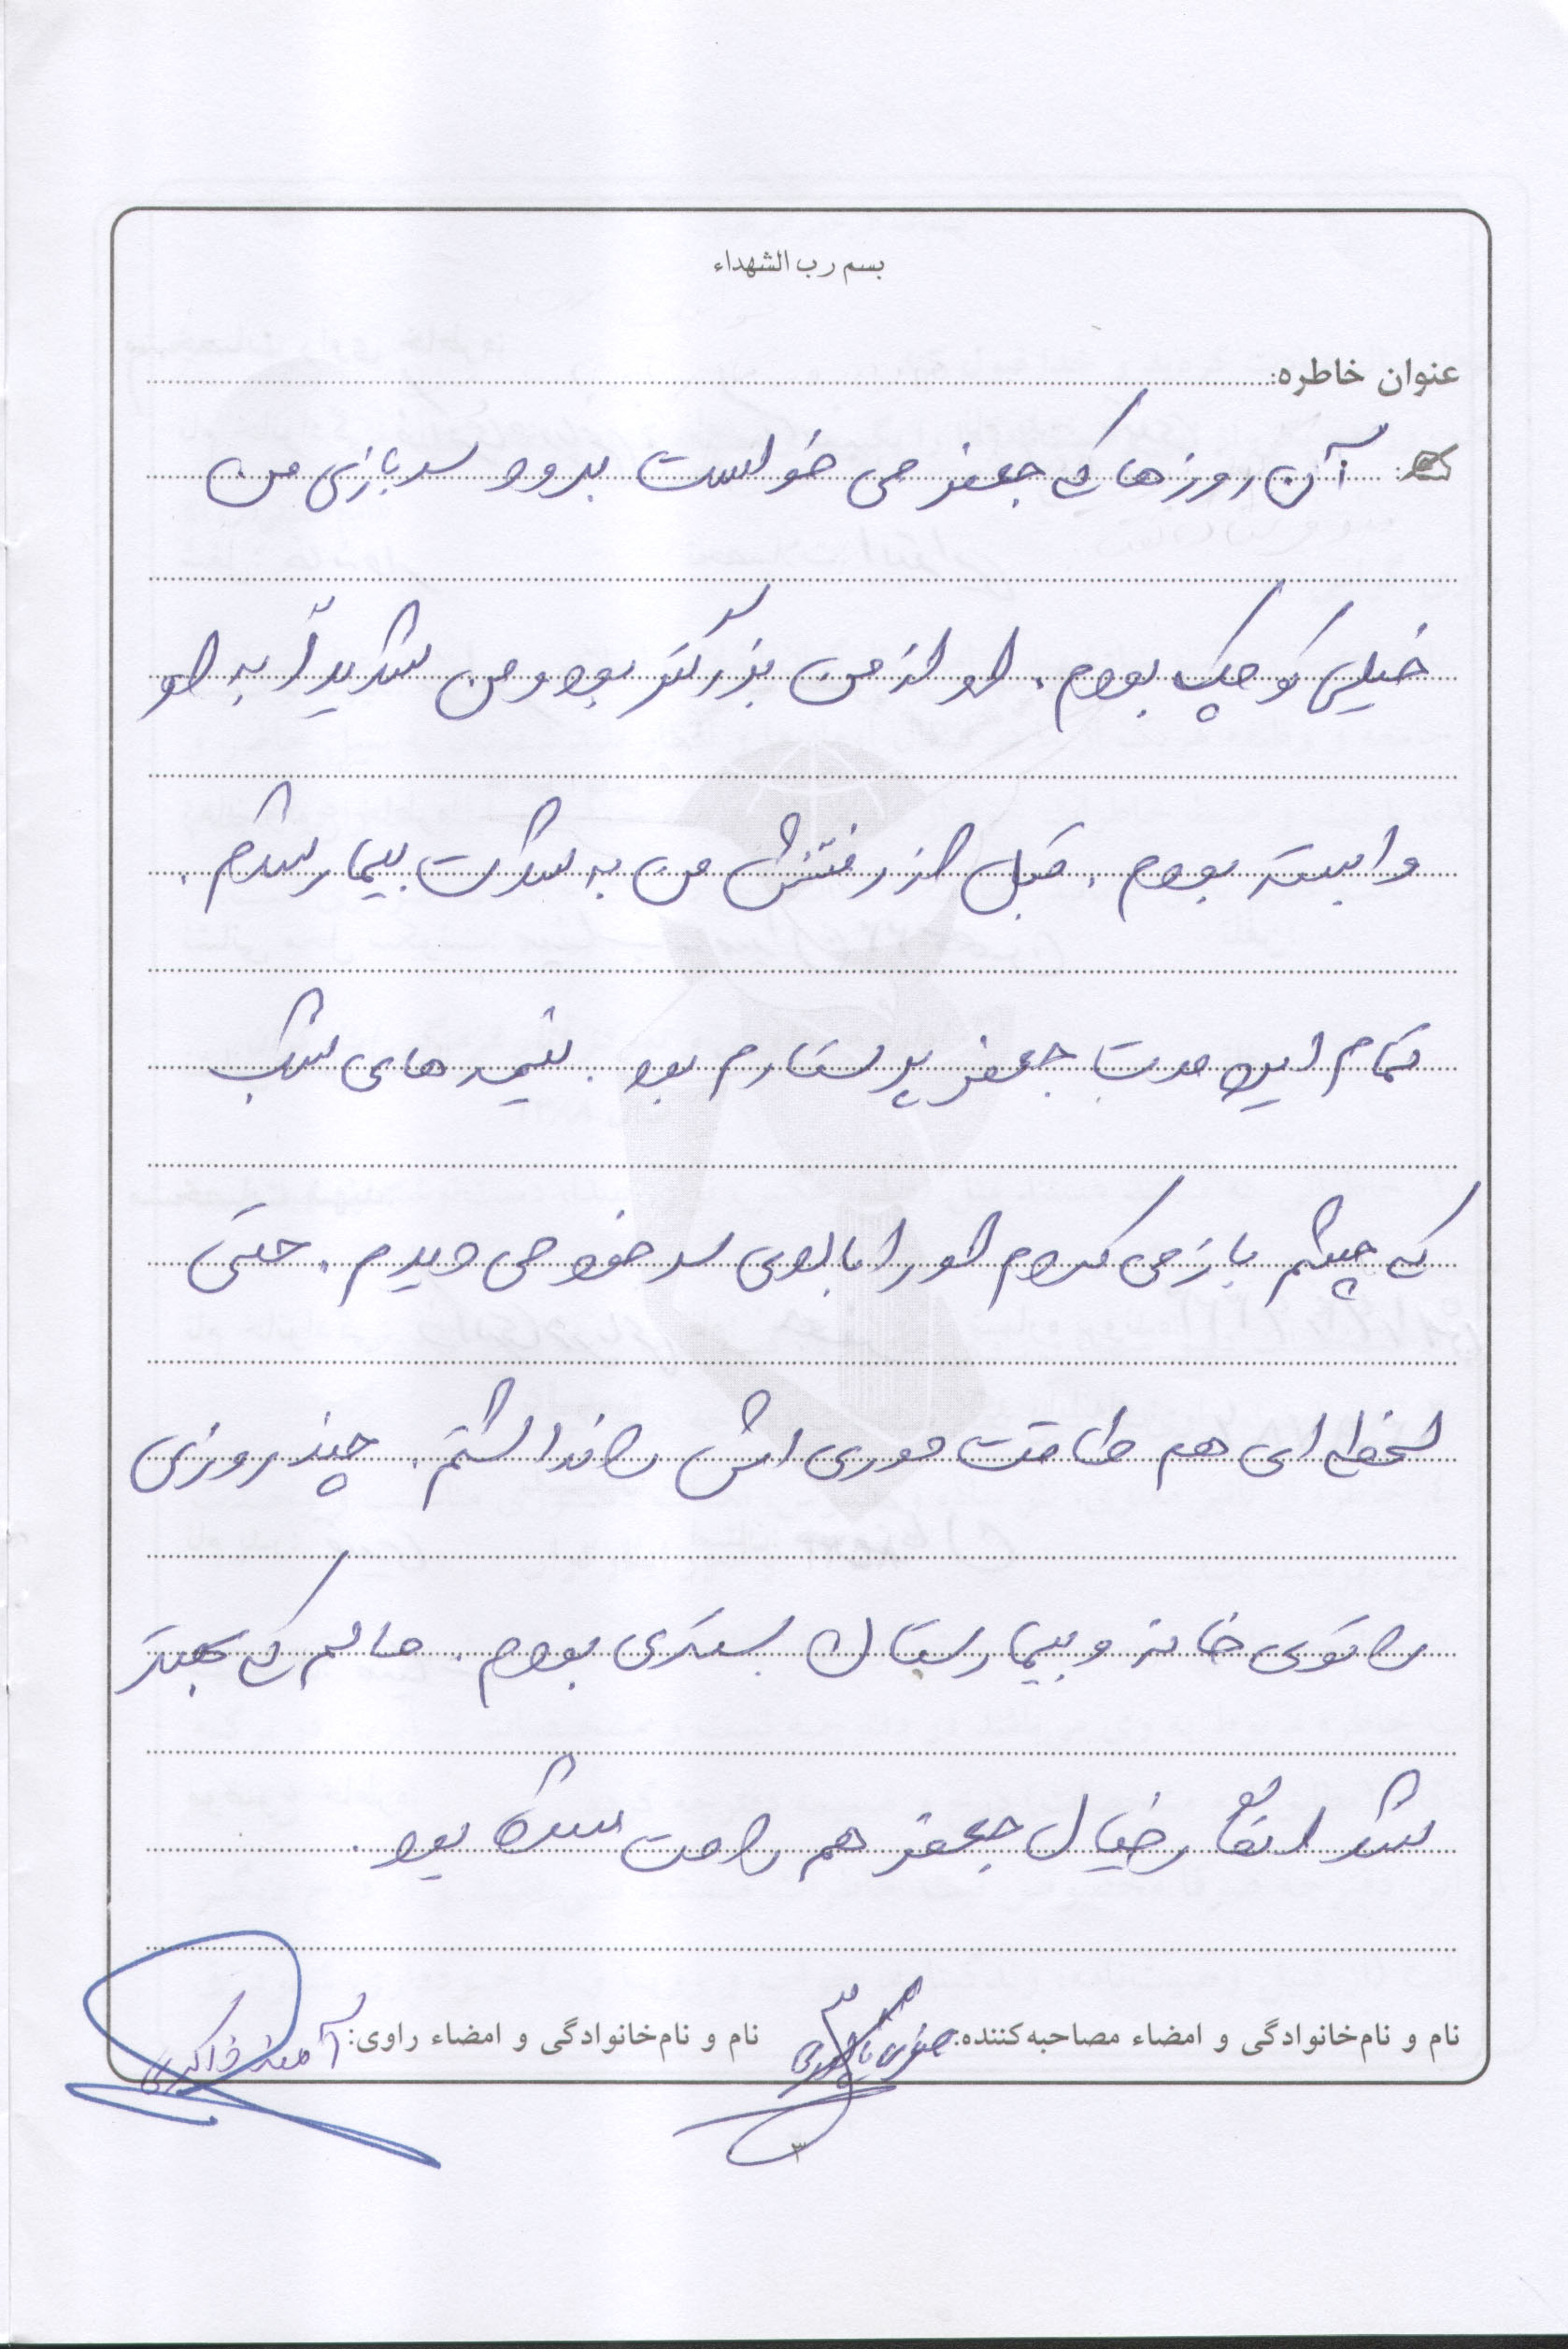 بسم رب الشهداء
عنوان خاطره:
آن روزها که جعفر می خواست برود سربازی من
خیلی کوچک بودم. او از من بزرگتر بود و من شدیداً به او
وابسته بودم. قبل از رفتنش من به شدت بیمار شدم.
تمام این مدت جعفر پرستارم بود. نیمه های شب
که چشم باز می کردم او را بالای سر خود می دیدم. حتی
لحظه ای هم طاقت دوری اش را نداشتم. چند روزی
را توی خانه و بیمارستان بستری بودم. حالم که بهتر
شد انگار خیال جعفر هم راحت شده بود.
نام و نام‌خانوادگی و امضاء مصاحبه‌کننده: نام و نام‌خانوادگی و امضاء راوی: آمنه ذاکری
۳